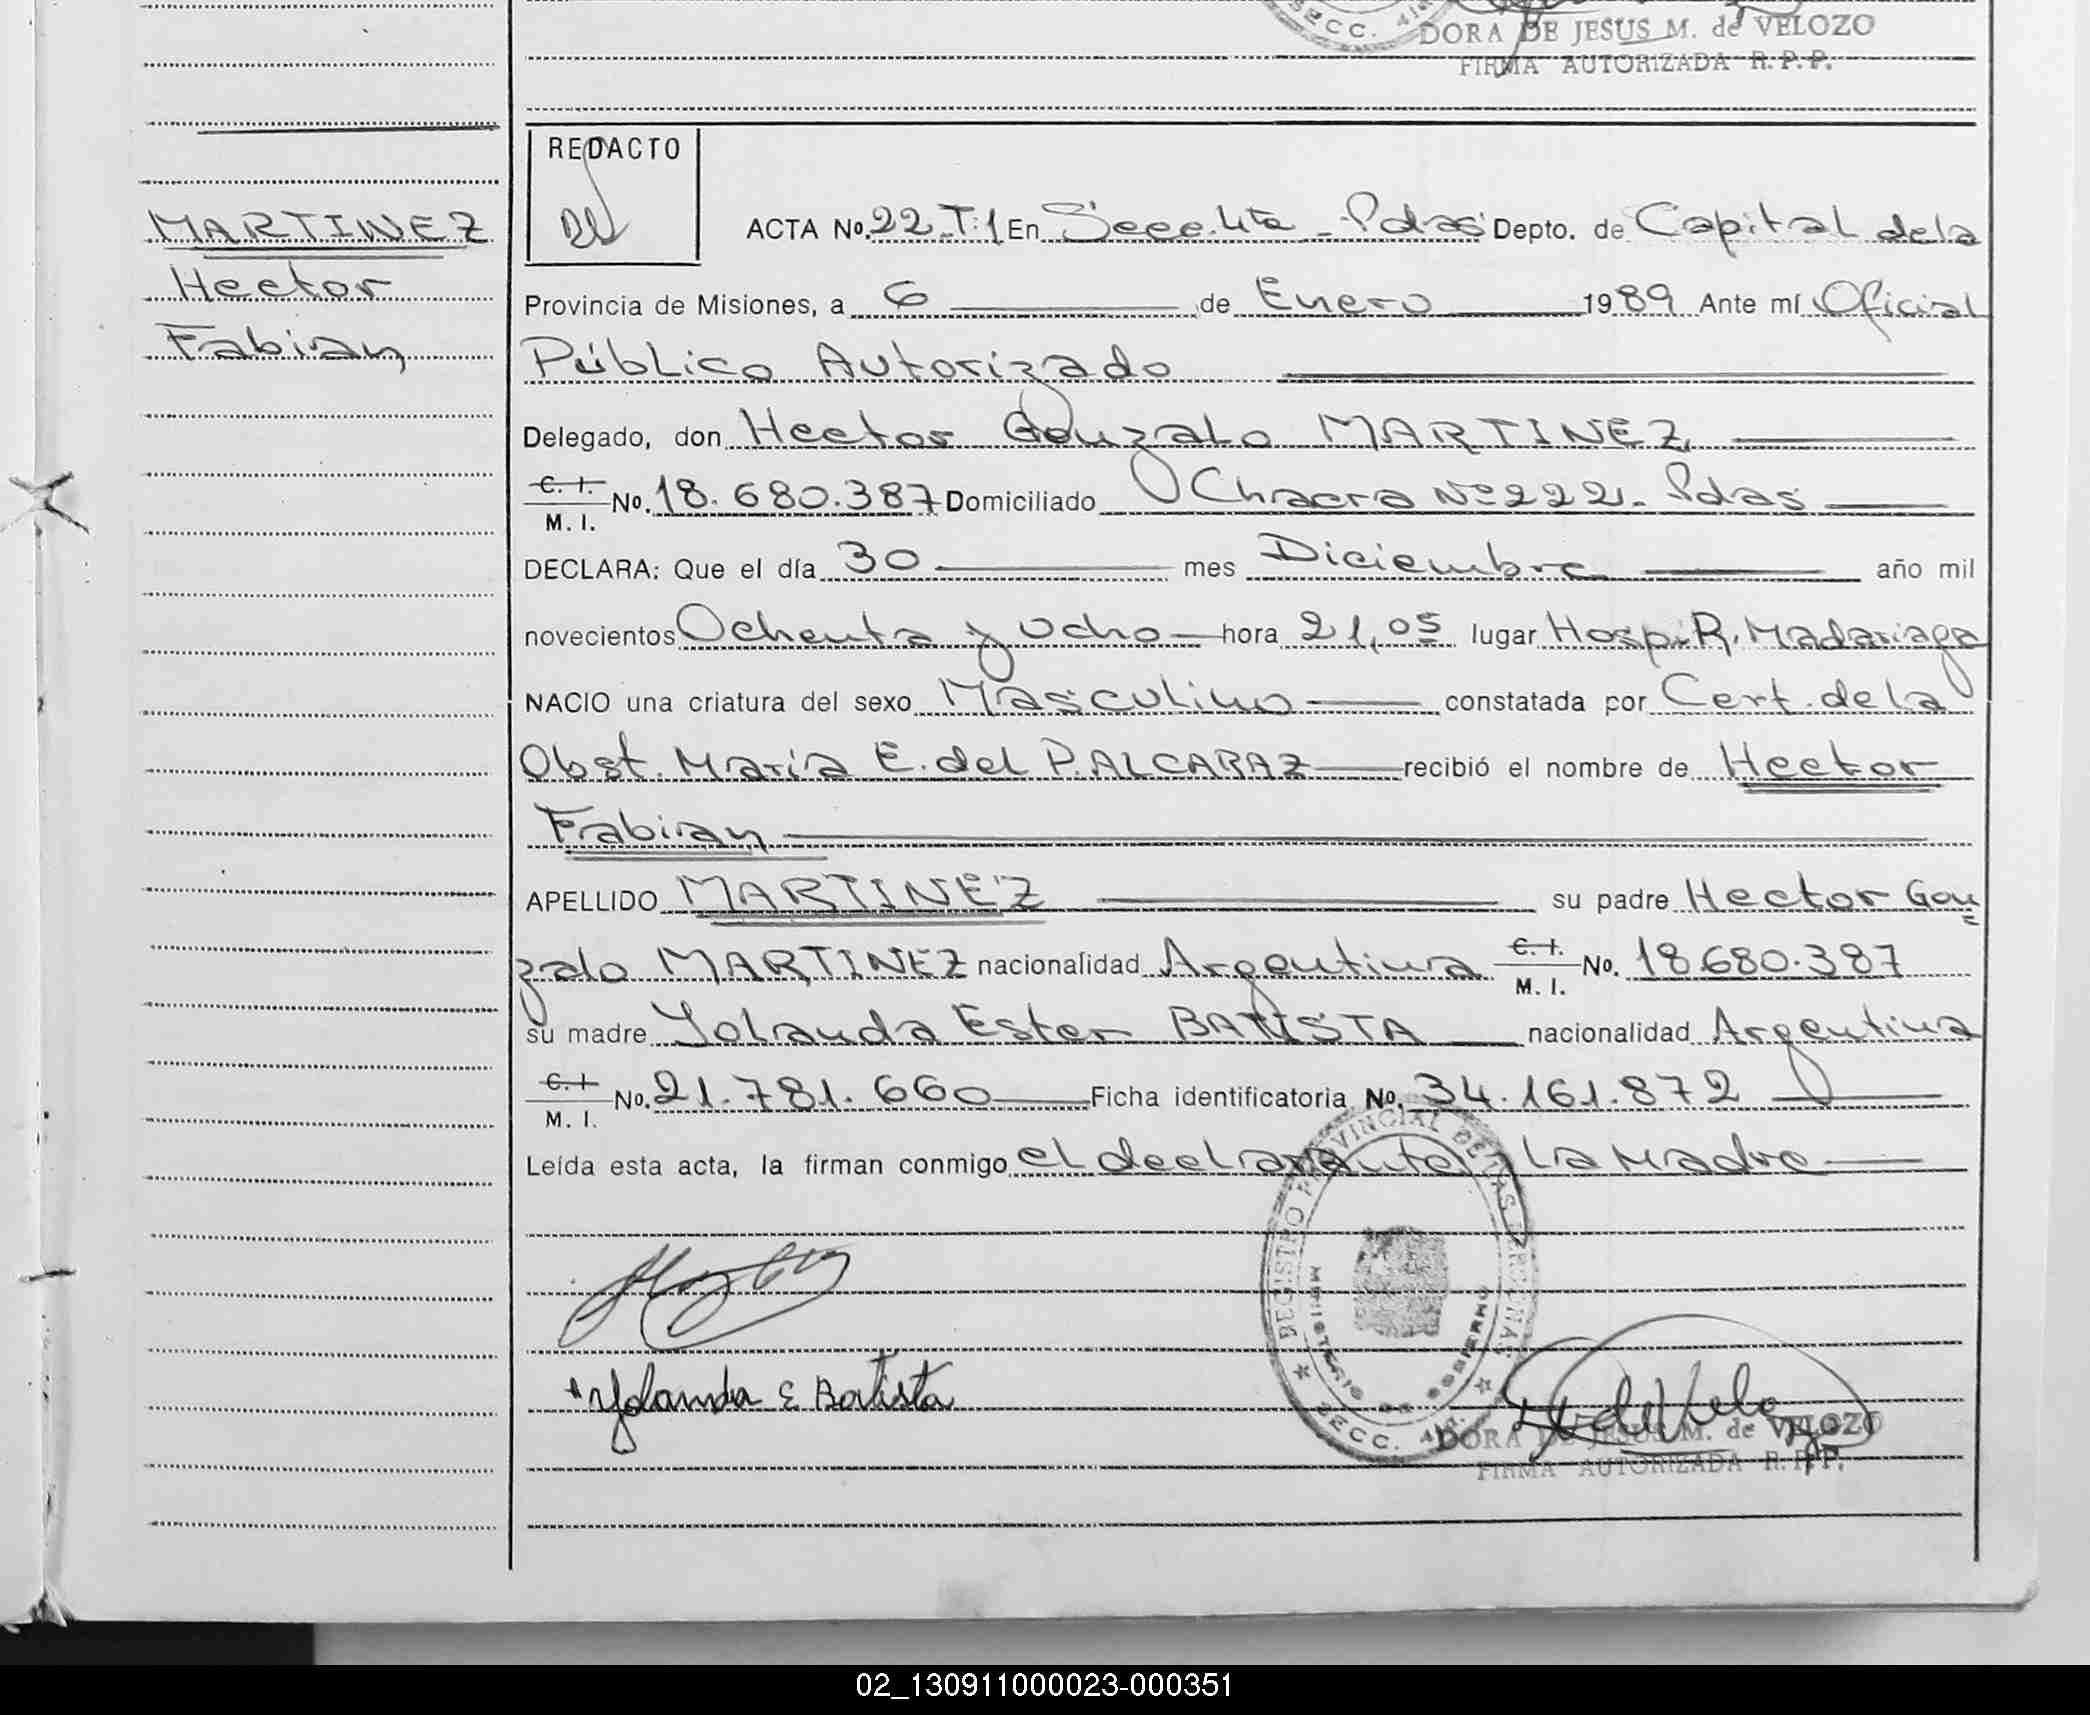 SECC. 4ta
DORA DE JESUS M. de VELOZO
FIRMA AUTORIZADA R. P. P.
REDACTO
MARTINEZ
Hector
Fabian
ACTA No. 22-T:1 En Secc. 4ta - Pdas Depto. de Capital de la
Provincia de Misiones, a 6 de Enero 1989 Ante mí Oficial
Público Autorizado
Delegado, don Hector Gonzalo MARTINEZ
C. I. M. I. No. 18.680.387 Domiciliado Chacra Nº 222 - Pdas
DECLARA: Que el día 30 mes Diciembre año mil
novecientos Ochenta y Ocho hora 21,05 lugar Hosp. R. Madariaga
NACIO una criatura del sexo Masculino constatada por Cert. de la
Obst. María E. del P. ALCARAZ recibió el nombre de Hector
Fabian
APELLIDO MARTINEZ su padre Hector Gon
zalo MARTINEZ nacionalidad Argentina C. I. M. I. No. 18.680.387
su madre Yolanda Ester BATISTA nacionalidad Argentina
C. I. M. I. No. 21.781.660 Ficha identificatoria No. 34.161.872
Leída esta acta, la firman conmigo el declarante y la Madre
REGISTRO PROVINCIAL DE LAS PERSONAS
MINISTERIO DE GOBIERNO
SECC. 4ta
Yolanda E Batista
DORA DE JESUS M. de VELOZO
FIRMA AUTORIZADA R. P. P.
02_130911000023-000351